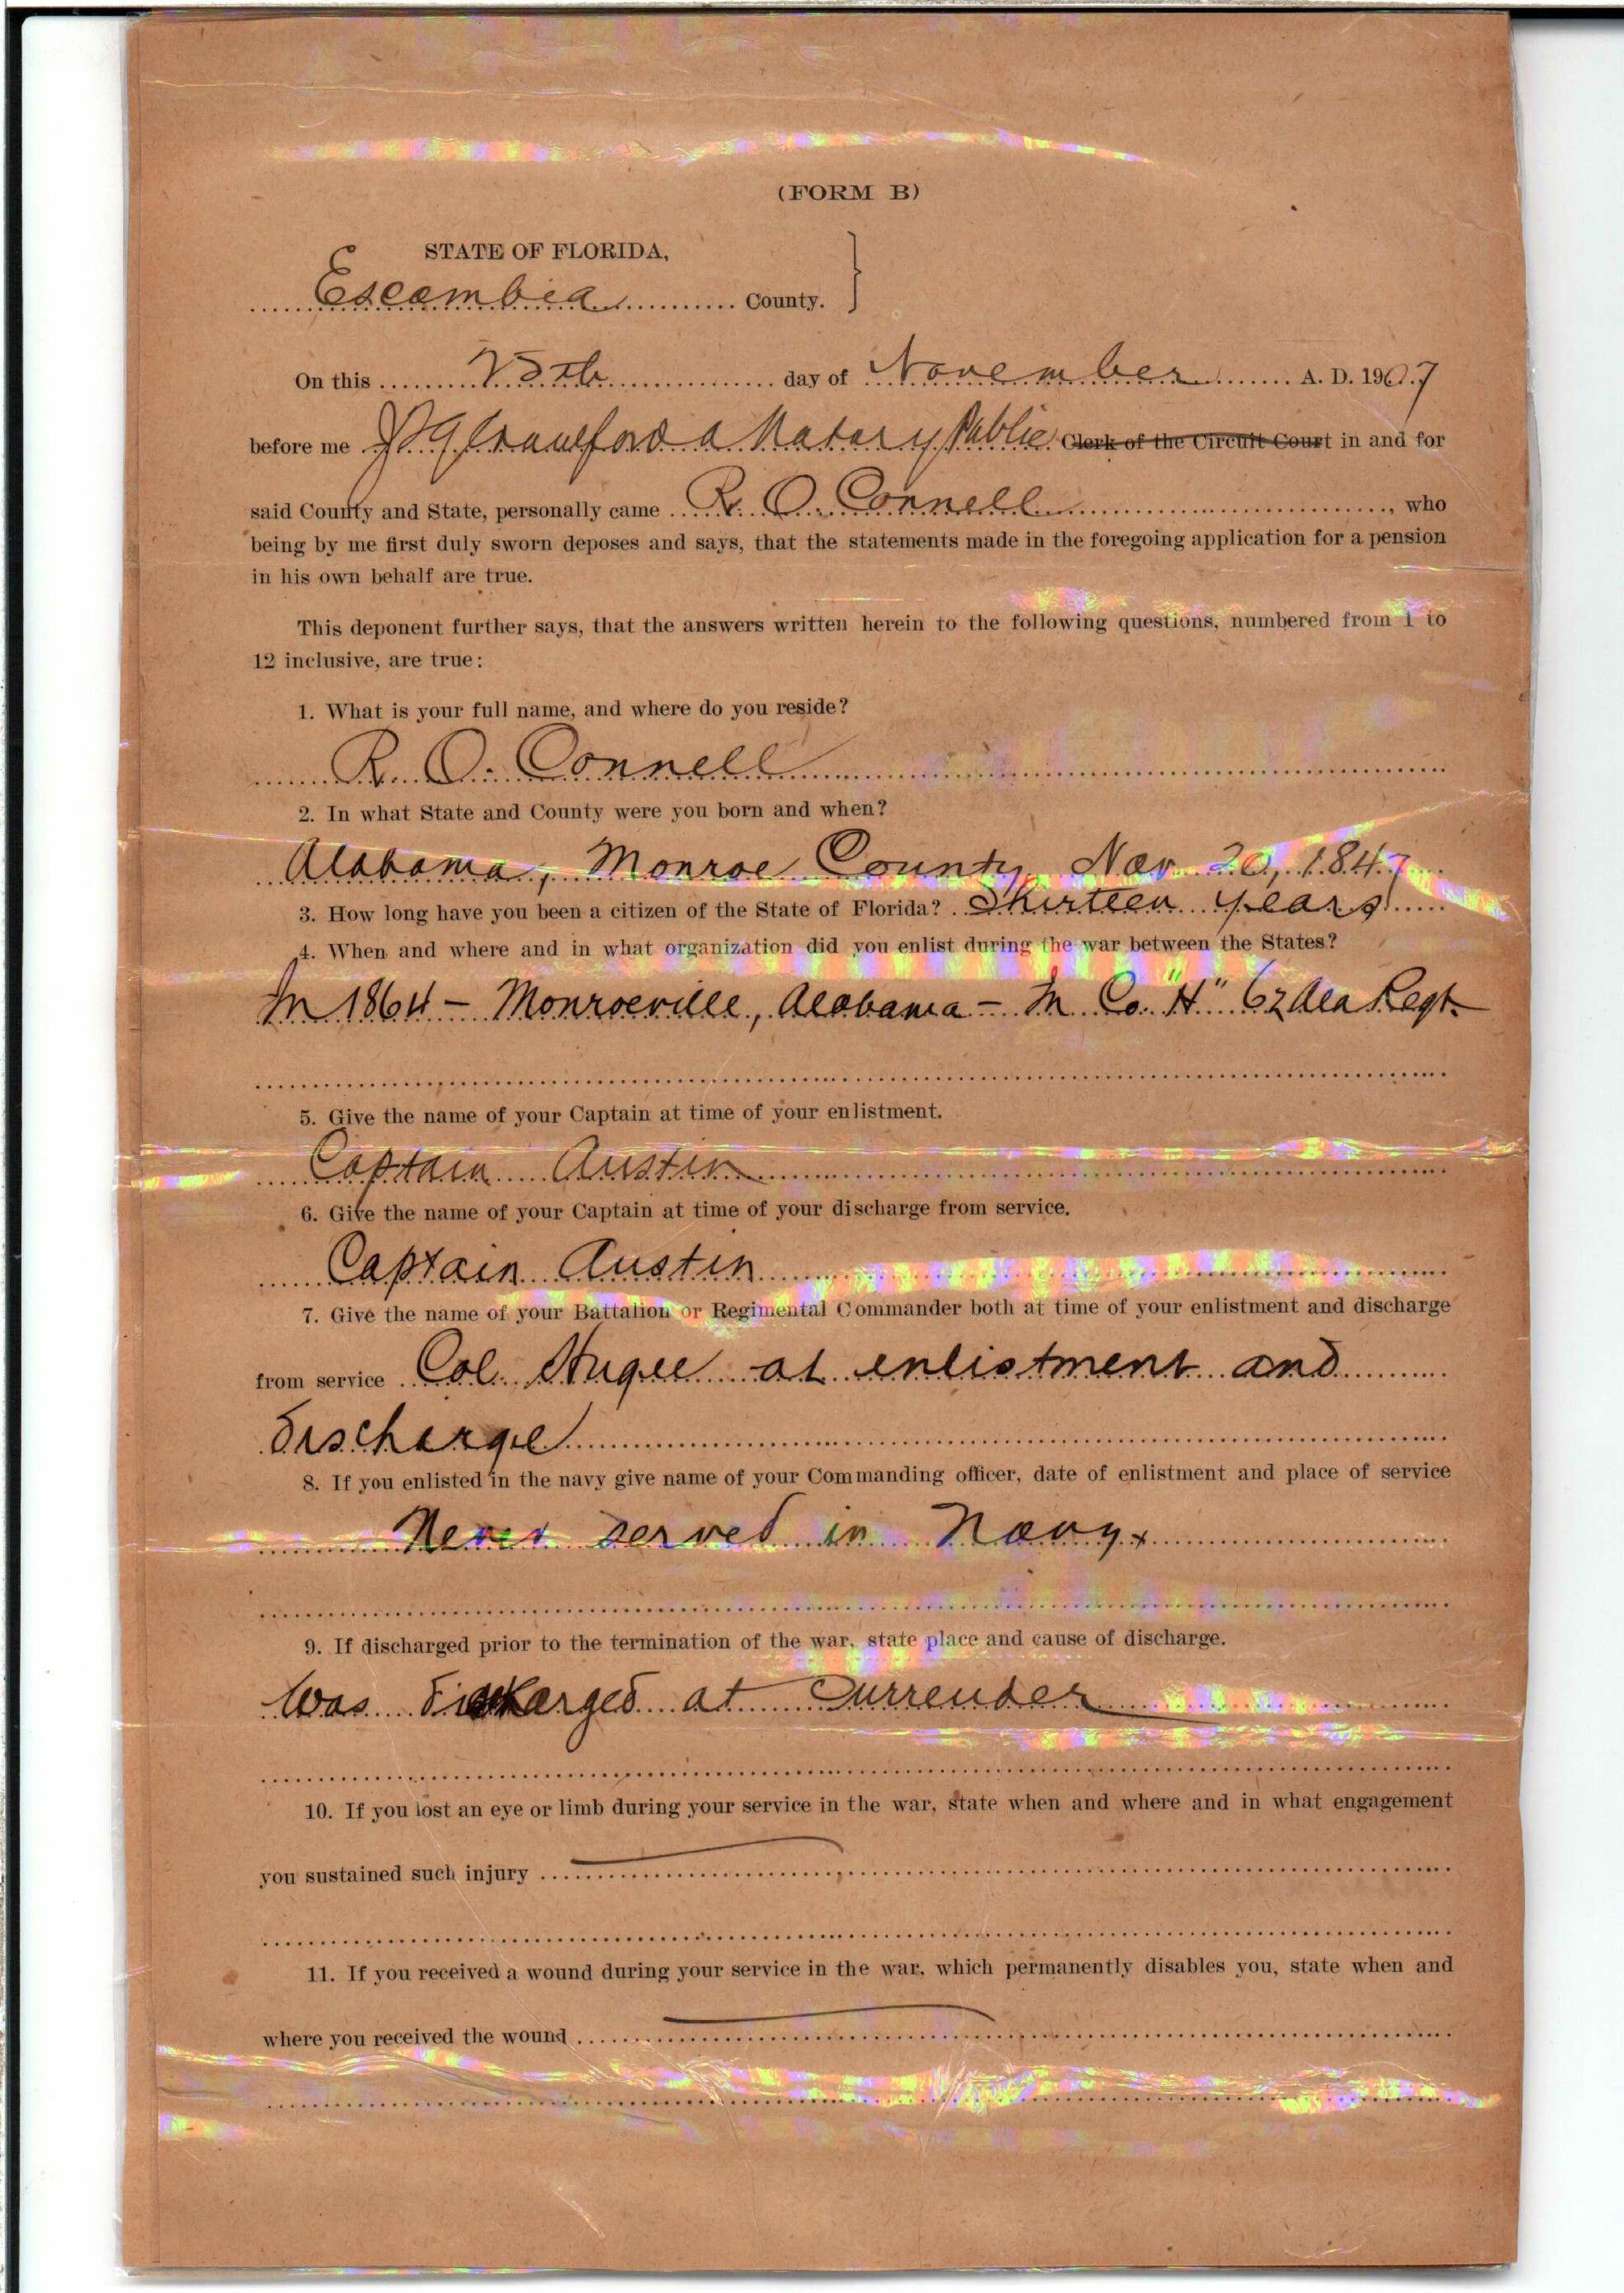 (FORM B)
STATE OF FLORIDA,
Escambia County.
On this day of November A. D. 1907
before me Crawford a Notary Public Clerk of the Circuit Court in and for
said County and State, personally came R. O. Connell, who
being by me first duly sworn deposes and says, that the statements made in the foregoing application for a pension
in his own behalf are true.
This deponent further says, that the answers written herein to the following questions, numbered from 1 to
12 inclusive, are true:
1. What is your full name, and where do you reside?
R. O. Connell
2. In what State and County were you born and when?
Alabama, Monroe County, Nov. 20, 1847
3. How long have you been a citizen of the State of Florida? Thirteen years
4. When and where and in what organization did you enlist during the war between the States?
In 1864 - Monroeville, Alabama - In Co. "H" 62 Ala Regt.
5. Give the name of your Captain at time of your enlistment.
Captain Austin
6. Give the name of your Captain at time of your discharge from service.
Captain Austin
7. Give the name of your Battalion or Regimental Commander both at time of your enlistment and discharge
from service Col. at enlistment and
discharge
8. If you enlisted in the navy give name of your Commanding officer, date of enlistment and place of service
Never served in Navy
9. If discharged prior to the termination of the war, state place and cause of discharge.
Was discharged at Surrender
10. If you lost an eye or limb during your service in the war, state when and where and in what engagement
you sustained such injury
11. If you received a wound during your service in the war, which permanently disables you, state when and
where you received the wound